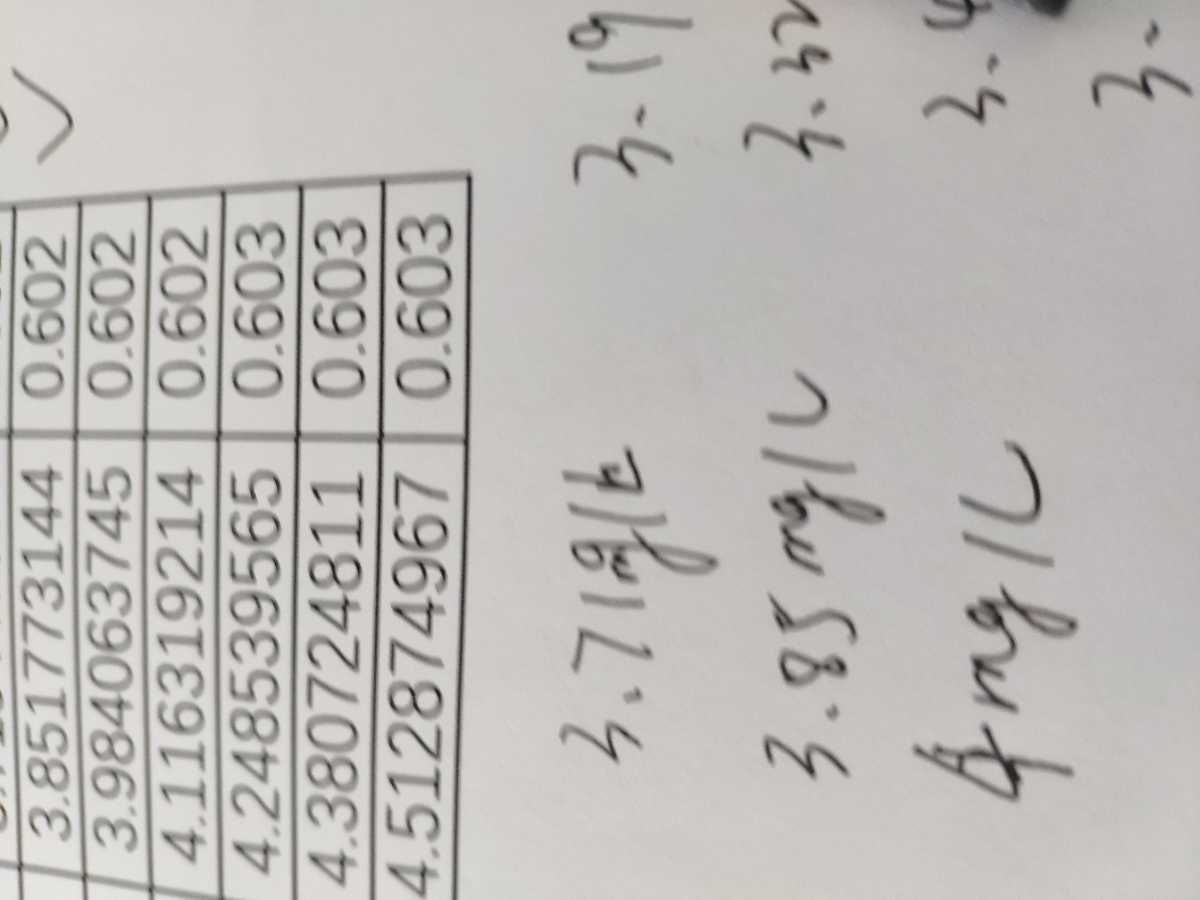 3.851773144 0.602
3.984063745 0.602
4.116319214 0.602
4.248539565 0.603
4.380724811 0.603
4.512874967 0.603
3.71mg/L 3.19
3.85mg/L 3.32
4mg/L 3.
3.